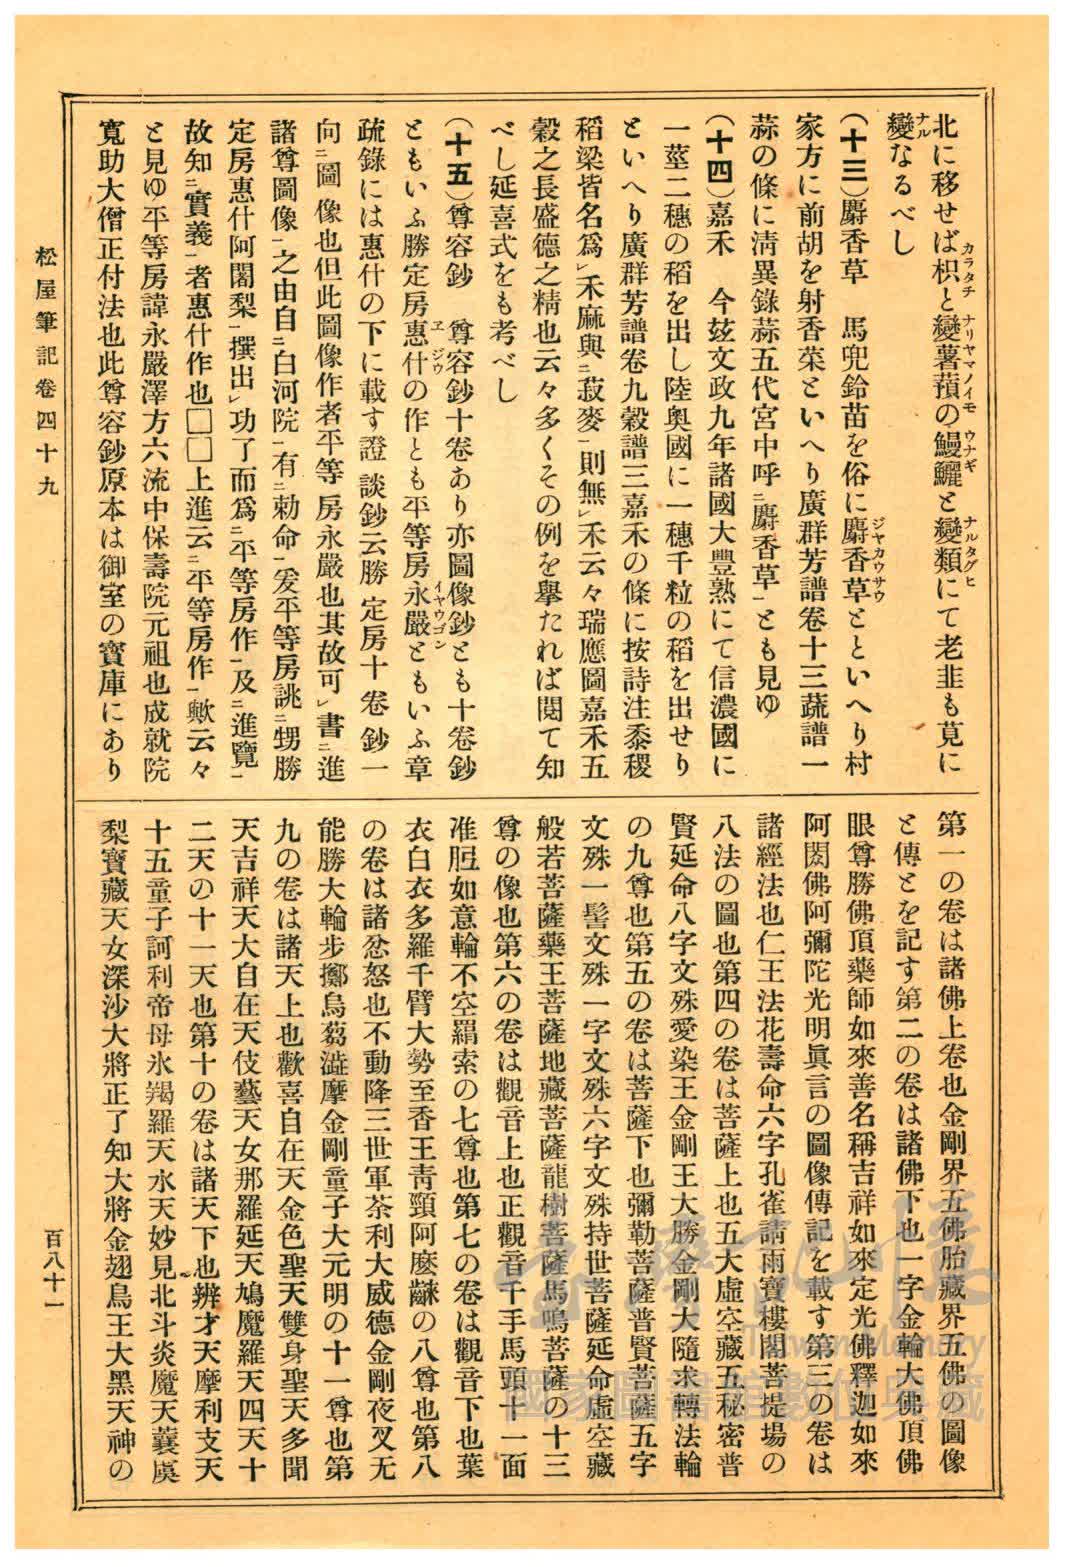 北に移せば枳と變薯蕷の鰻鱺と變類にて老韭も莧に
變なるべし
(十三)麝香草　馬兜鈴苗を俗に麝香草とといへり村
家方に前胡を射香菜といへり廣群芳譜卷十三蔬譜一
蒜の條に淸異錄蒜五代宮中呼ニ麝香草一とも見ゆ
(十四)嘉禾　今玆文政九年諸國大豐熟にて信濃國に
一莖二穗の稻を出し陸奧國に一穗千粒の稻を出せり
といへり廣群芳譜卷九穀譜三嘉禾の條に按詩注黍稷
稻梁皆名爲レ禾麻與ニ菽麥一則無レ禾云々瑞應圖嘉禾五
穀之長盛德之精也云々多くその例を擧たれば閱て知
べし延喜式をも考べし
(十五)尊容鈔　尊容鈔十卷あり亦圖像鈔とも十卷鈔
ともいふ勝定房惠什の作とも平等房永嚴ともいふ章
疏錄には惠什の下に載す證談鈔云勝定房十卷鈔一
向ニ圖像也但此圖像作者平等房永嚴也其故可レ書ニ進
諸尊圖像一之由自ニ白河院一有ニ勅命一爰平等房誂ニ甥勝
定房惠什阿闍梨一撰出レ功了而爲ニ平等房作一及ニ進覽一
故知ニ實義一者惠什作也□□上進云ニ平等房作一歟云々
と見ゆ平等房諱永嚴澤方六流中保壽院元祖也成就院
寬助大僧正付法也此尊容鈔原本は御室の寶庫にあり
第一の卷は諸佛上卷也金剛界五佛胎藏界五佛の圖像
と傳とを記す第二の卷は諸佛下也一字金輪大佛頂佛
眼尊勝佛頂藥師如來善名稱吉祥如來定光佛釋迦如來
阿閦佛阿彌陀光明眞言の圖像傳記を載す第三の卷は
諸經法也仁王法花壽命六字孔雀請雨寶樓閣菩提場の
八法の圖也第四の卷は菩薩上也五大虛空藏五秘密普
賢延命八字文殊愛染王金剛王大勝金剛大隨求轉法輪
の九尊也第五の卷は菩薩下也彌勒菩薩普賢菩薩五字
文殊一髻文殊一字文殊六字文殊持世菩薩延命虛空藏
般若菩薩藥王菩薩地藏菩薩龍樹菩薩馬鳴菩薩の十三
尊の像也第六の卷は觀音上也正觀音千手馬頭十一面
准胝如意輪不空羂索の七尊也第七の卷は觀音下也葉
衣白衣多羅千臂大勢至香王靑頸阿麼䶩の八尊也第八
の卷は諸忿怒也不動降三世軍荼利大威德金剛夜叉无
能勝大輪步擲烏蒭澁摩金剛童子大元明の十一尊也第
九の卷は諸天上也歡喜自在天金色聖天雙身聖天多聞
天吉祥天大自在天伎藝天女那羅延天鳩魔羅天四天十
二天の十一天也第十の卷は諸天下也辨才天摩利支天
十五童子訶利帝母氷羯羅天水天妙見北斗炎魔天蘘虞
梨寶藏天女深沙大將正了知大將金翅鳥王大黑天神の
松屋筆記卷四十九
百八十一
Taiwan Memory
國家圖書館數位典藏